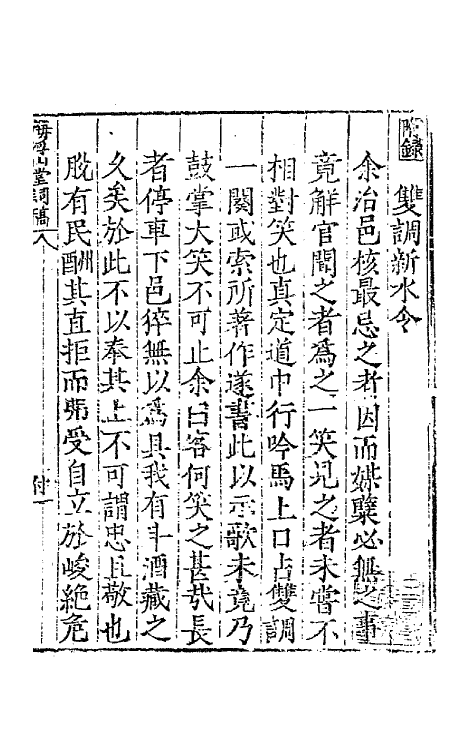 附録
雙調新水令
余治邑核最忌之者因而媒糵必無之事
竟解官聞之者爲之一笑見之者未嘗不
相對笑也真定道中行吟馬上口占雙調
一闋或索所著作遂書此以示歌未竟乃
鼓掌大笑不可止余曰客何笑之甚哉長
者停車下邑猝無以爲具我有斗酒藏之
久矣於此不以奉其上不可謂忠且敬也
脫有民酬其直拒而弗受自立於峻絶危
海浮山堂詞稿 八
付一